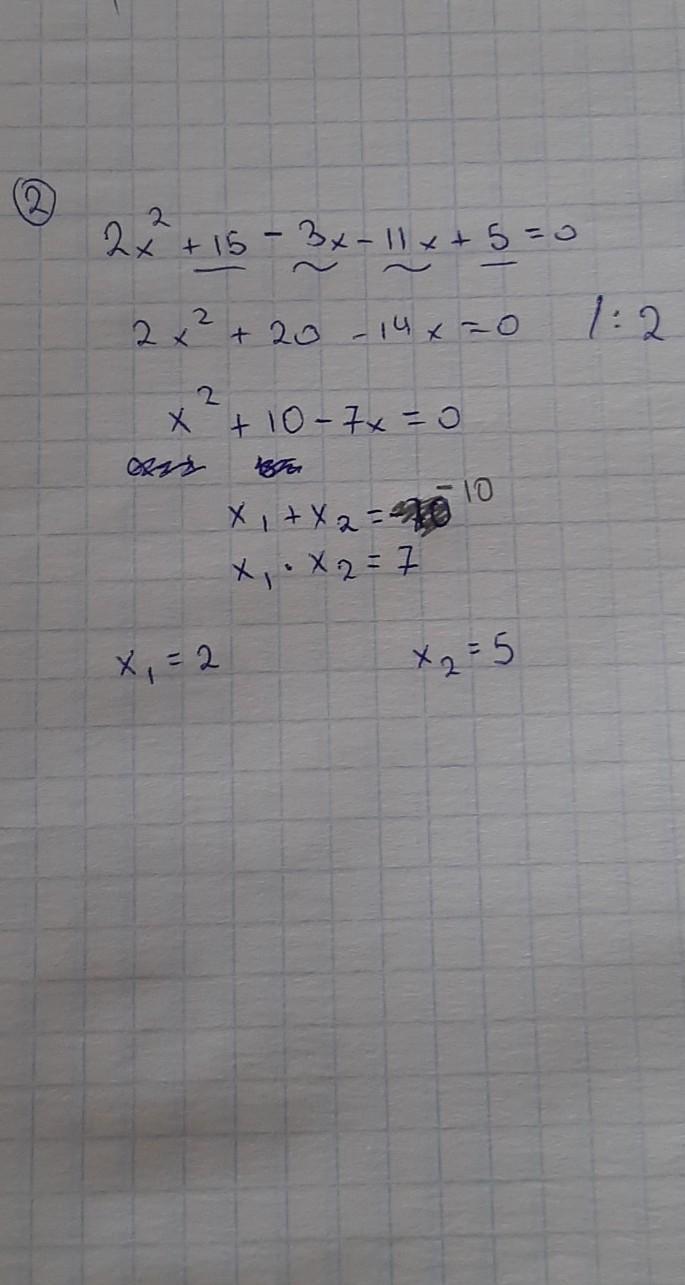 ②
2x² + 15 - 3x - 11x + 5 = 0
2x² + 20 - 14x = 0 /: 2
x² + 10 - 7x = 0
x₁ + x₂ = -10
x₁ · x₂ = 7
x₁ = 2 x₂ = 5